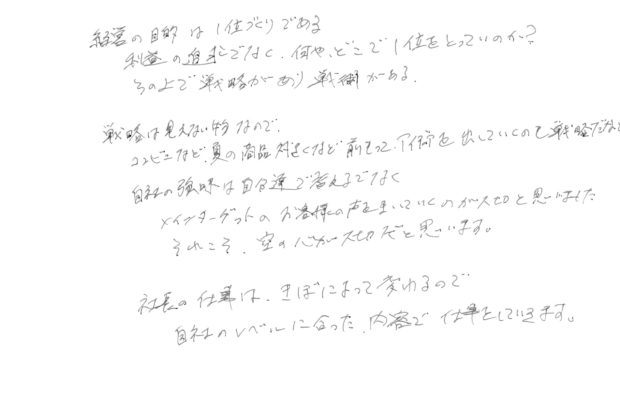 経営の目的は1位づくりである
利益の追求でなく、何や、どこで1位をとっていのか?
その上で戦略があり戦術がある。
戦略は見えない物なので、
コンビニなど、夏の商品 など前もって、 を出していくのも戦略だな
自社の強味は自分達で考えるでなく
メインターゲットのお客様の声をきいていくのが大切と思いました
それこそ、空の心が大切だと思います。
社長の仕事は、きぼによって変わるので
自社のレベルに合った、内容で仕事をしていきます。